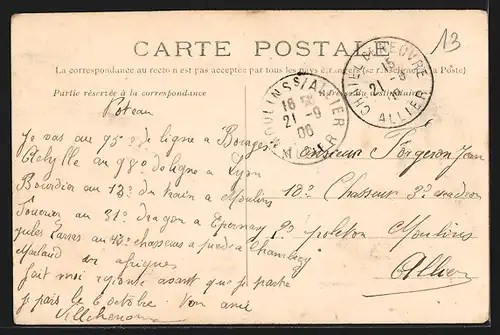 13
CARTE POSTALE
La correspondance au recto n est pas acceptée par tous les pays étrangers (se renseigner à la Poste)
Partie réservée à la correspondance
Adresse du destinataire
MOULINS S/ALLIER
16
21 -9
06
ALLIER
CHATEL DE NEUVRE
15
21 -9
ALLIER
Poteau
Je vas au 95e de ligne a Bourges
au 98e de ligne a Lyon
Bourdier au 13e du train a Moulins
au 31e dragon a Epernay
Jules au chasseurs a pied a Chambery
en afrique
fait moi reponse avant que je parte
je pars le 6 octobre Ton ami
Monsieur Forgeron Jean
10e Chasseur 3e
2e peloton Moulins
Allier